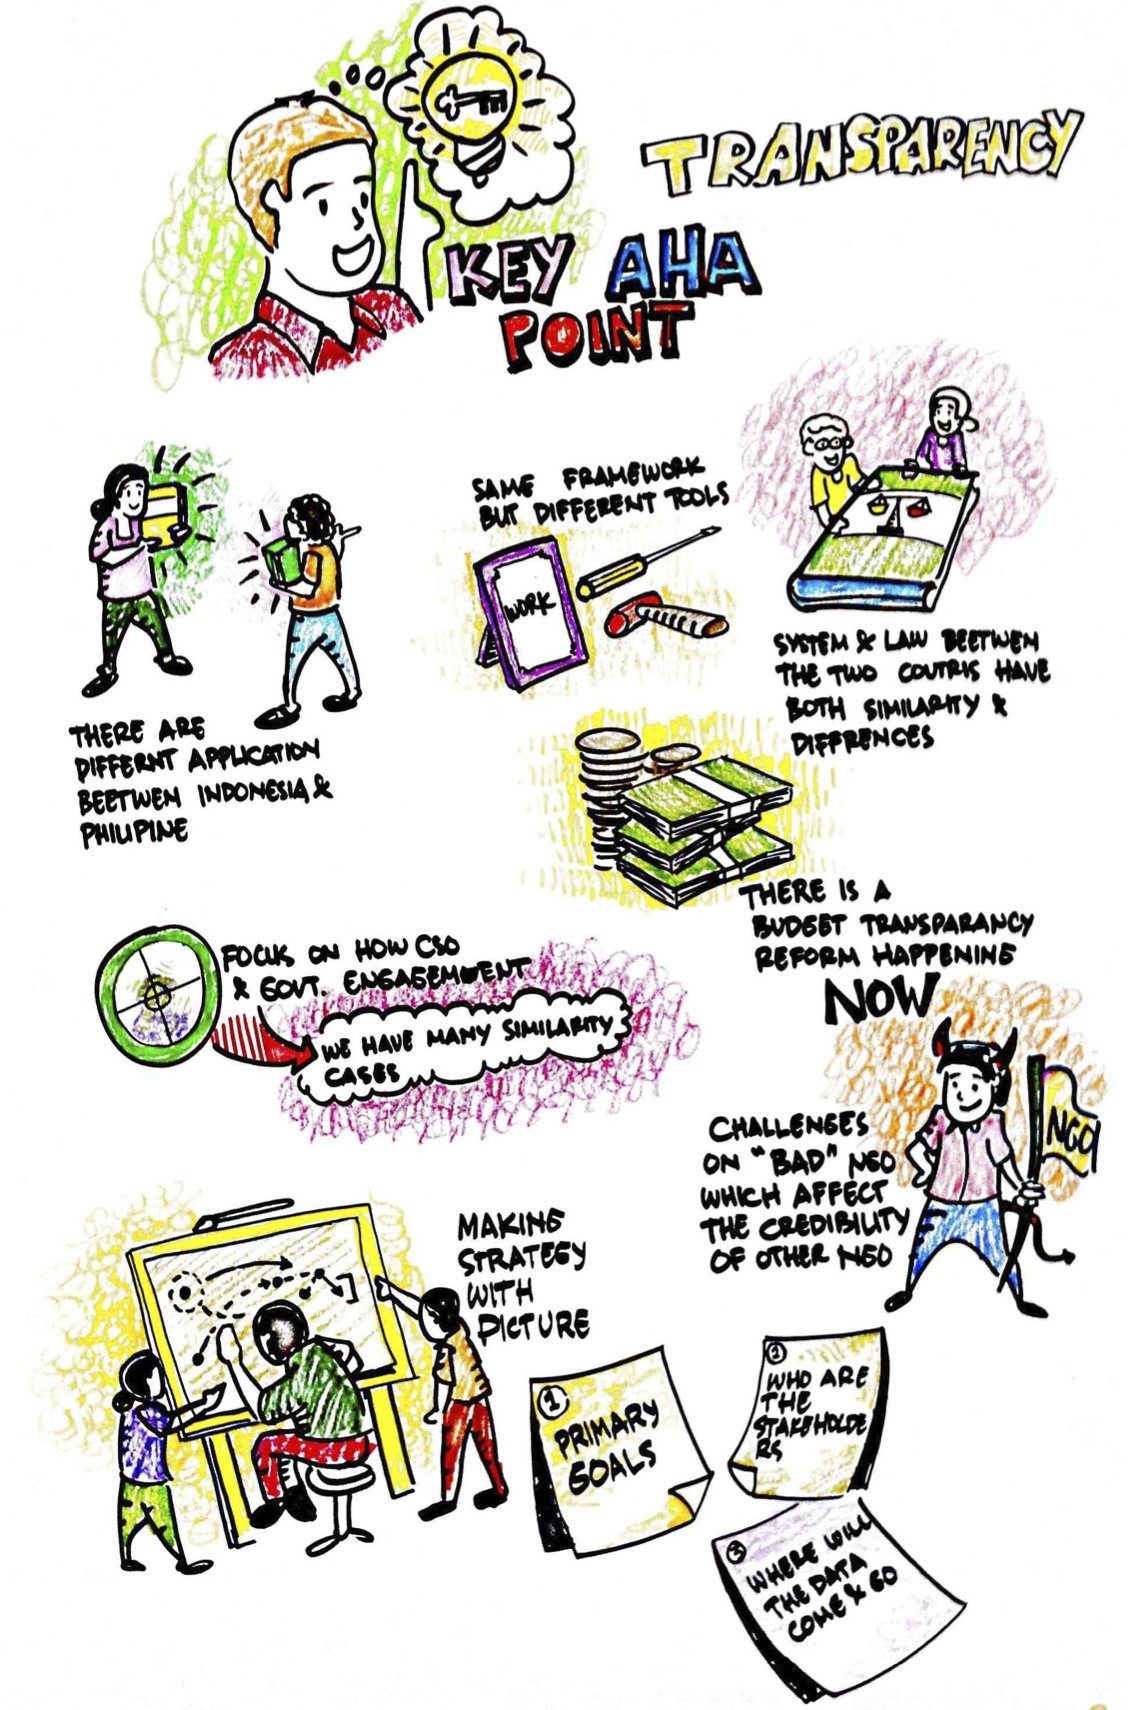 TRANSPARENCY
KEY AHA
POINT
SAME FRAMEWORK
BUT DIFFERENT TOOLS
WORK
SYSTEM & LAW BEETWEN
THE TWO COUTRIS HAVE
BOTH SIMILARITY &
DIFFRENCES
THERE ARE
DIFFERNT APPLICATION
BEETWEN INDONESIA &
PHILIPINE
THERE IS A
BUDGET TRANSPARANCY
REFORM HAPPENING
NOW
FOCUS ON HOW CSO
& GOVT. ENGAGEMENT
WE HAVE MANY SIMILARITY
CASES
CHALLENGES
ON "BAD" NGO
WHICH AFFECT
THE CREDIBILITY
OF OTHER NGO
NGO
MAKING
STRATEGY
WITH
PICTURE
1
PRIMARY
GOALS
2
WHO ARE
THE
STAKEHOLDE
RS
3
WHERE WILL
THE DATA
COME & GO